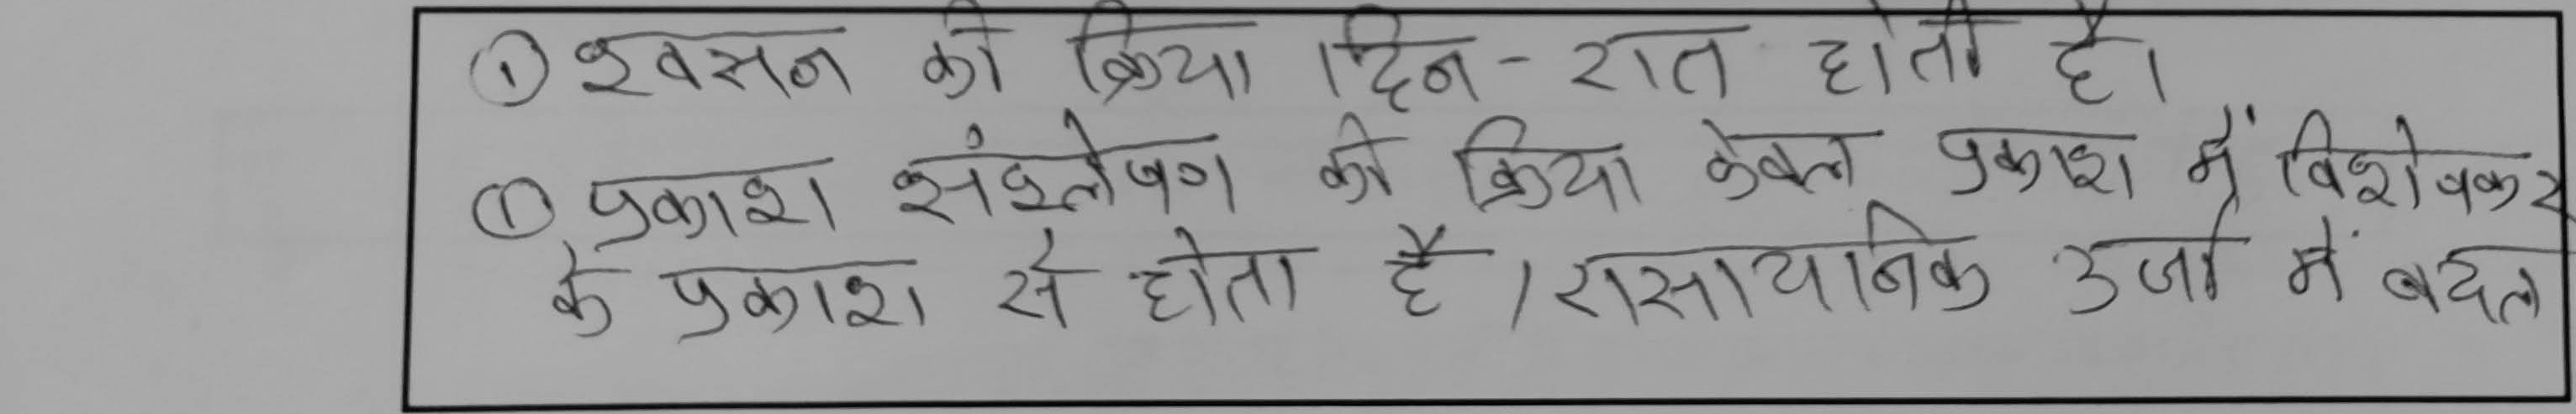 ① श्वसन की क्रिया दिन - रात होती है।
① प्रकाश संश्लेषण की क्रिया केवल प्रकाश में विशेषकर
के प्रकाश से होता है । रासायनिक उर्जा में बदल